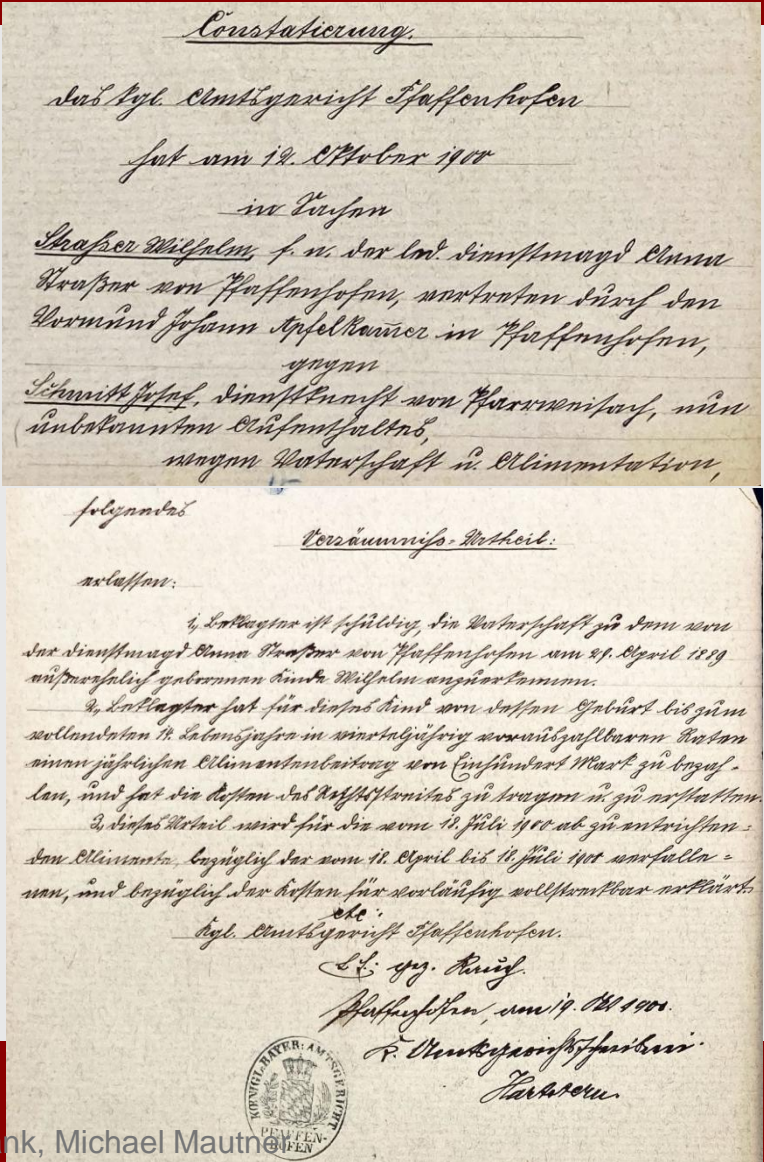 Constatierung.
das kgl. Amtsgericht Pfaffenhofen
hat am 12. Oktober 1900
in Sachen
Straßer Wilhelm, f. n. der led. Dienstmagd Anna
Straßer von Pfaffenhofen, vertreten durch den
Vormund Johann Apfelkam̄er in Pfaffenhofen,
gegen
Schmitt Josef, Dienstknecht von Pfarrweisach, nun
unbekannten Aufenthaltes,
wegen Vaterschaft u. Alimentation,
folgendes
Versäumniß-Urtheil:
erlassen:
1, Beklagter ist schuldig, die Vaterschaft zu dem von
der Dienstmagd Anna Straßer von Pfaffenhofen am 29. April 1889
außerehelich geborenen Kinde Wilhelm anzuerkennen.
2., Beklagter hat für dieses Kind von dessen Geburt bis zum
vollendeten 14. Lebensjahre in vierteljährig vorauszahlbaren Raten
einen jährlichen Alimentenbeitrag von Einhundert Mark zu bezah-
len, und hat die Kosten des Rechtsstreites zu tragen u. zu erstatten.
3, dieses Urteil wird für die vom 18. Juli 1900 ab zu entrichten-
den Alimente, bezüglich der vom 18. April bis 18. Juli 1900 verfalle-
nen, und bezüglich der Kosten für vorläufig vollstreckbar erklärt.
etc.
Kgl. Amtsgericht Pfaffenhofen.
gez. Rauch.
Pfaffenhofen, am 19. Okt 1900.
K. Amtsgerichtsschreiberei.
KOENIGL: BAYER: AMTSGERICHT
PFAFFEN-
HOFEN
nk, Michael Mautner